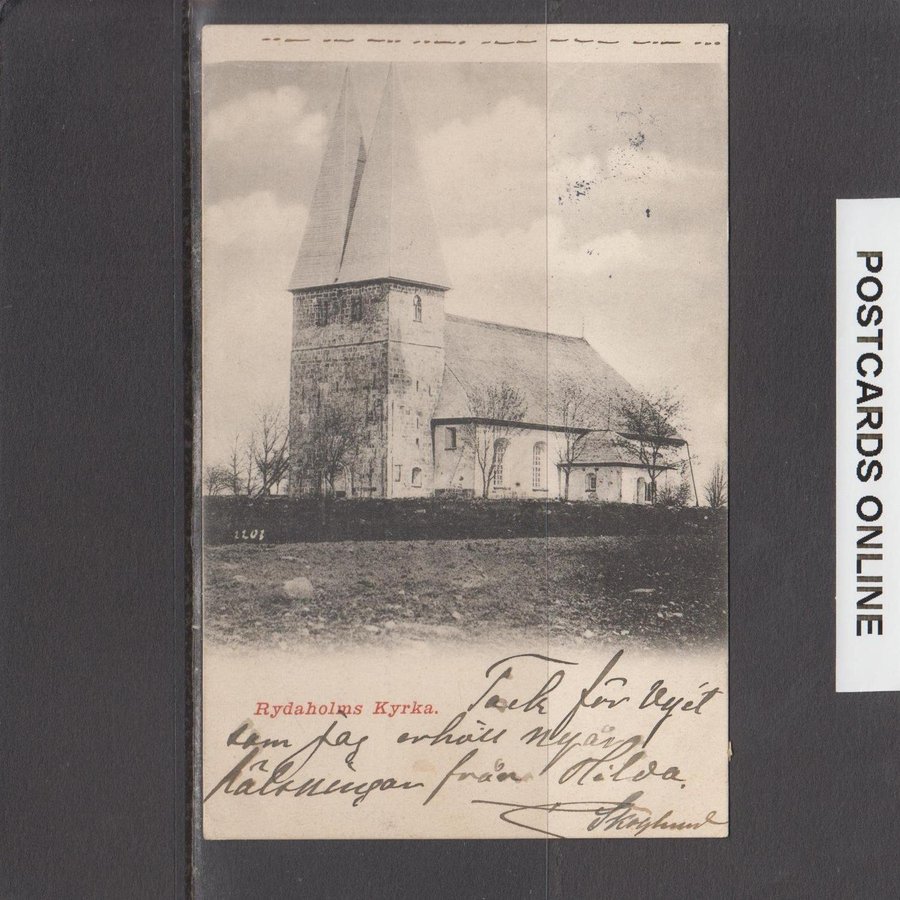 2203
Rydaholms Kyrka.
Tack för Vyét
som jag erhöll nyårs
hälsningar från Hilda.
Skoglund
POSTCARDS ONLINE